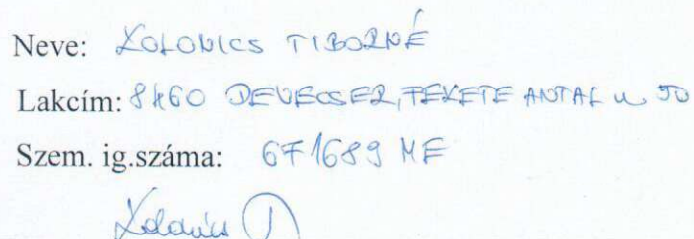 Neve: KOLONICS TIBORNÉ
Lakcím: 8460 DEVECSER, FEKETE ANTAL u 50
Szem. ig.száma: 671689 ME
Kolonics T